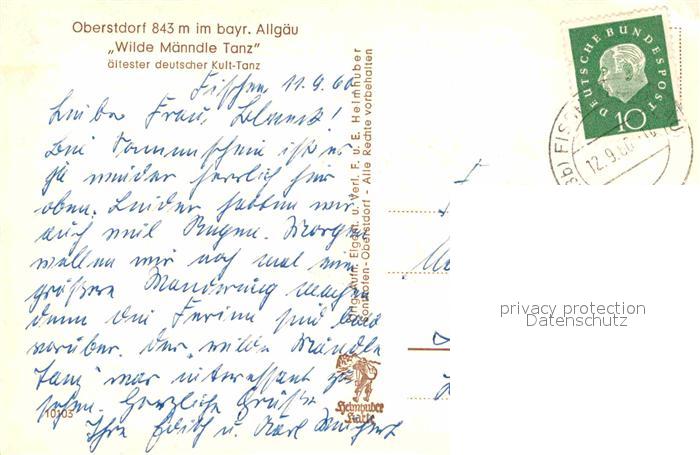 Oberstdorf 843 m im bayr. Allgäu
„Wilde Männdle Tanz"
ältester deutscher Kult-Tanz
Fischen 11.9.60
Liebe Frau
Bei Sonnenschein ist es
ja wieder herrlich hier
oben. Leider hatten wir
auch viel Regen. Morgen
wollen wir noch mal eine
größere Wanderung machen
denn die Ferien sind bald
vorüber. Der „wilde Mändle
Tanz" war interessant zu
sehen. Herzliche Grüße
Ihre Edith u. Karl
10103
Orig.-Aufn. Eigent. u. Verl. F. u. E. Heimhuber
Sonthofen-Oberstdorf - Alle Rechte vorbehalten
Heimhuber
Karte
DEUTSCHE BUNDESPOST
10
12.9.60
privacy protection
Datenschutz